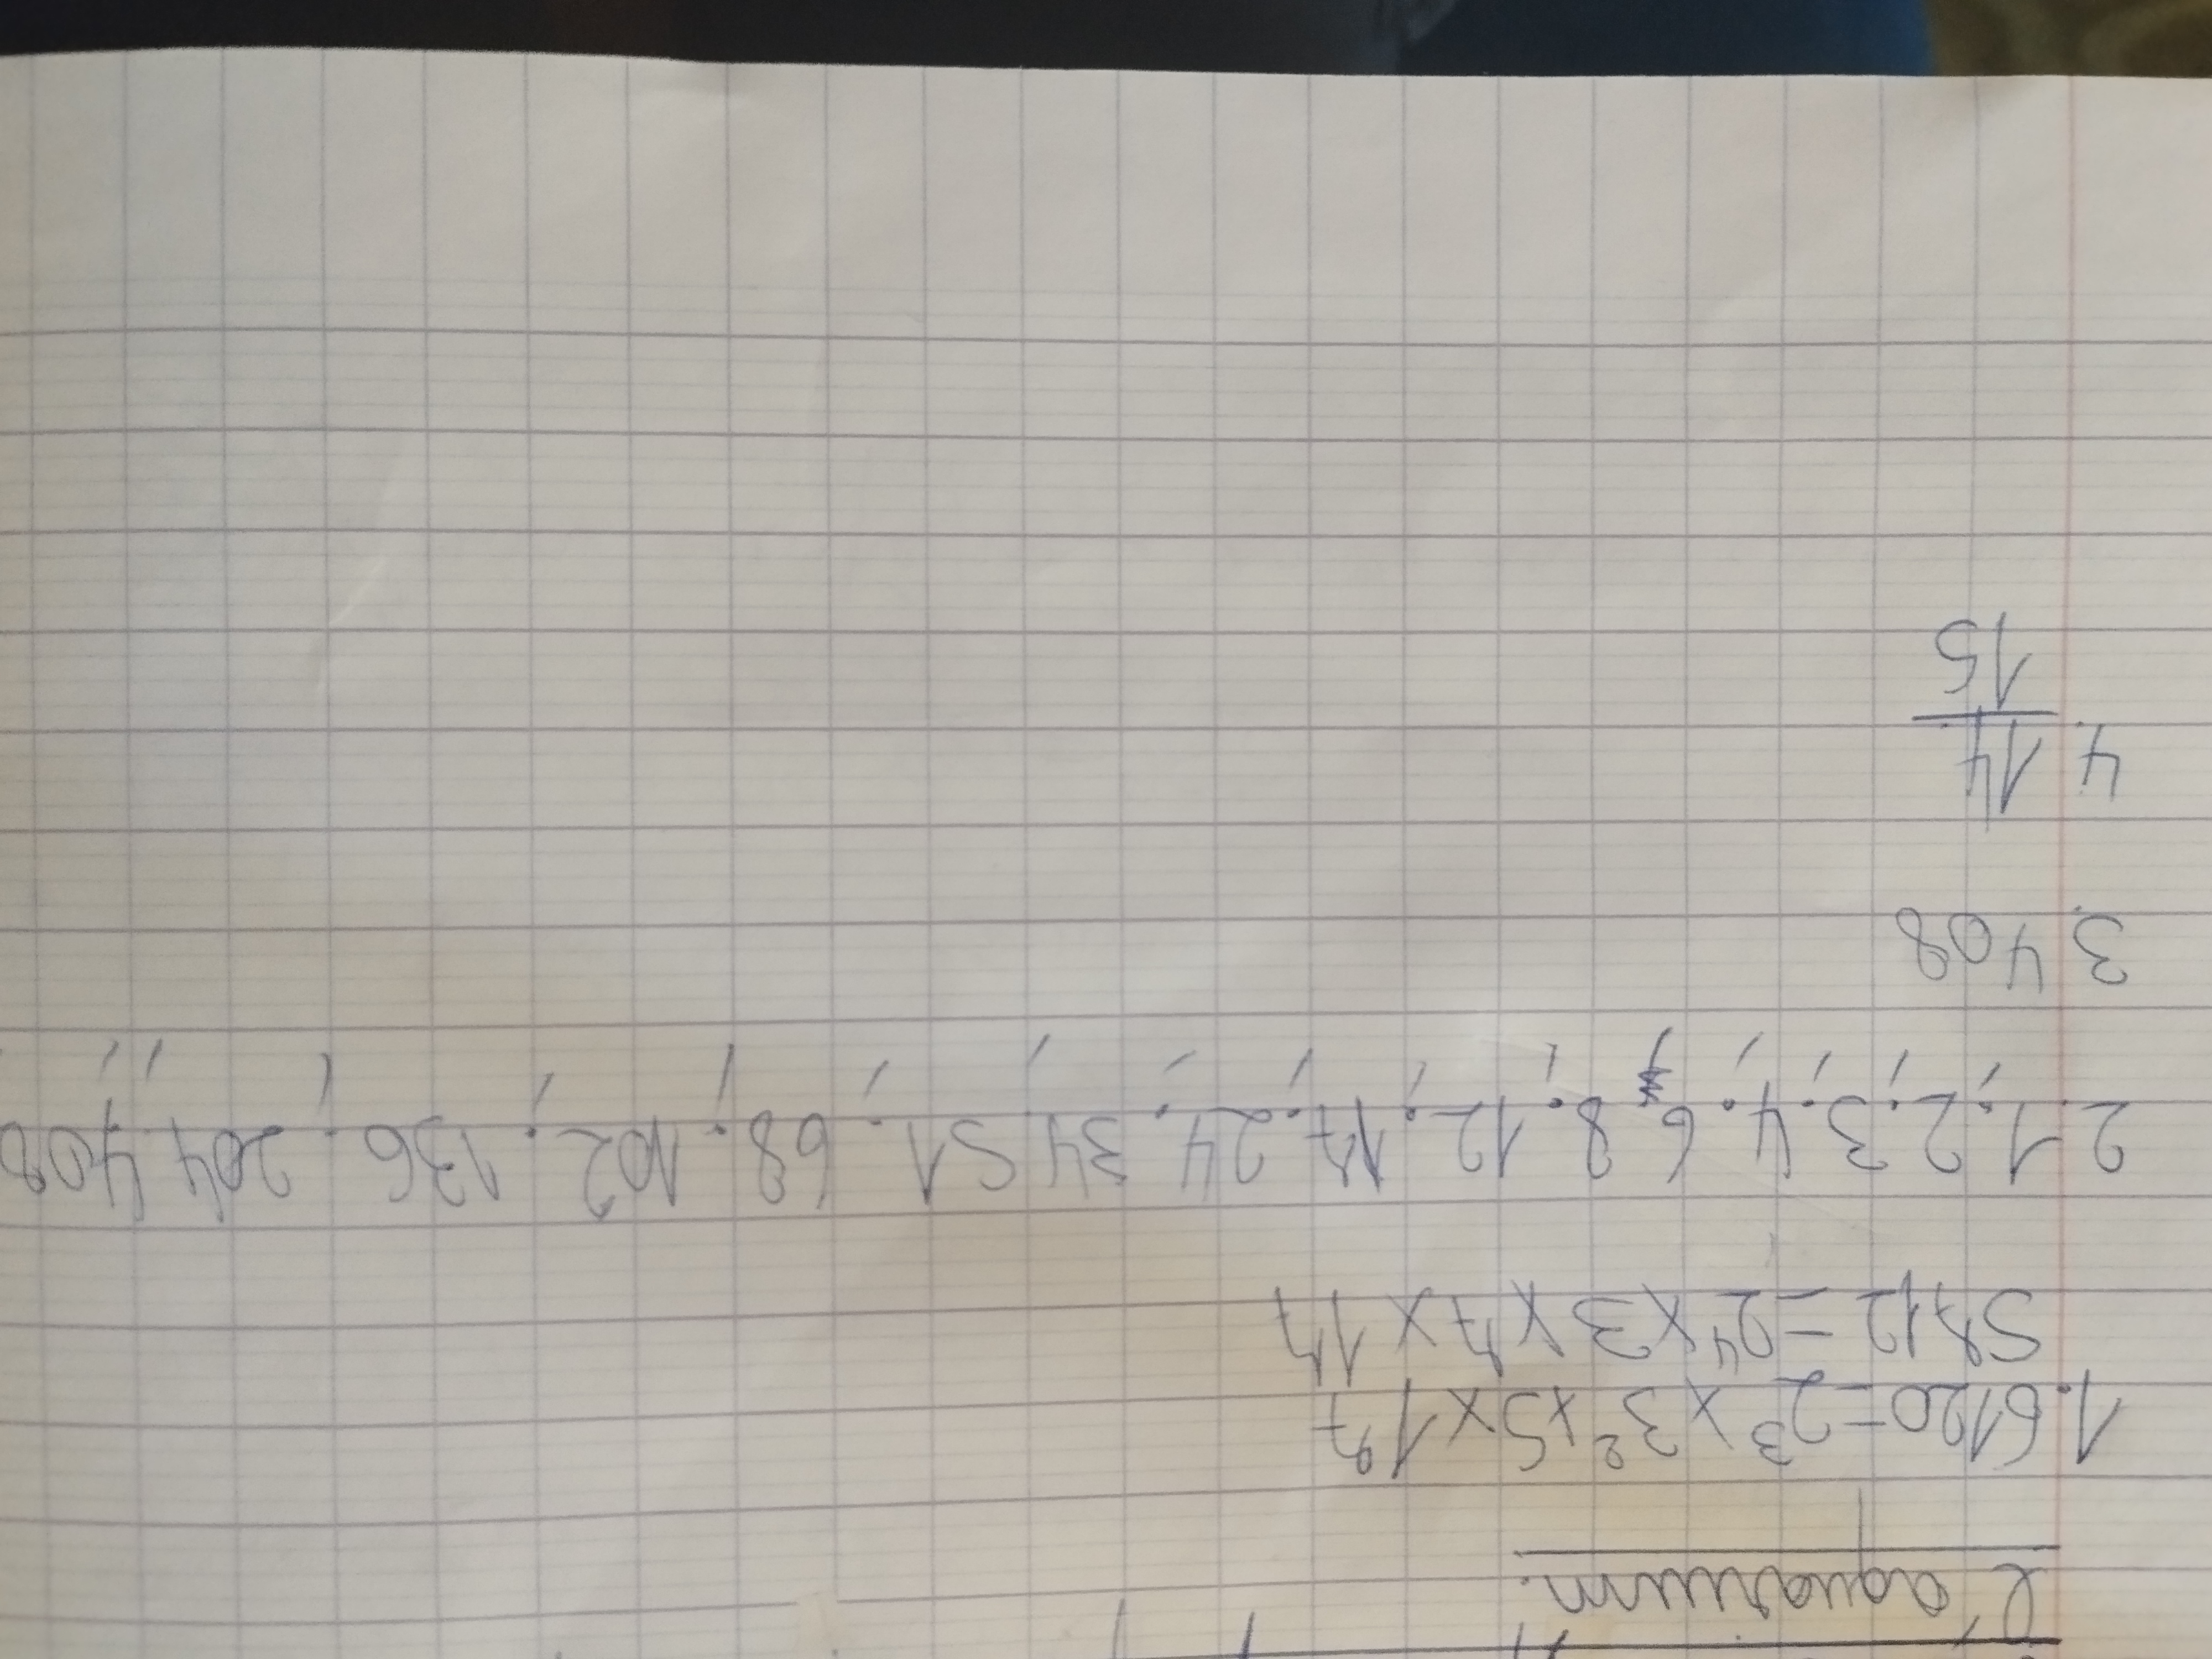 l'aquarium.
1. 6120 = 2³ x 3² x 5 x 17
5712 = 2⁴ x 3 x 7 x 17
2. 1 ; 2 ; 3 ; 4 ; 6 ; 8 ; 12 ; 17 ; 24 ; 34 ; 51 ; 68 ; 102 ; 136 ; 204 ; 408
3. 408
4. 14
15